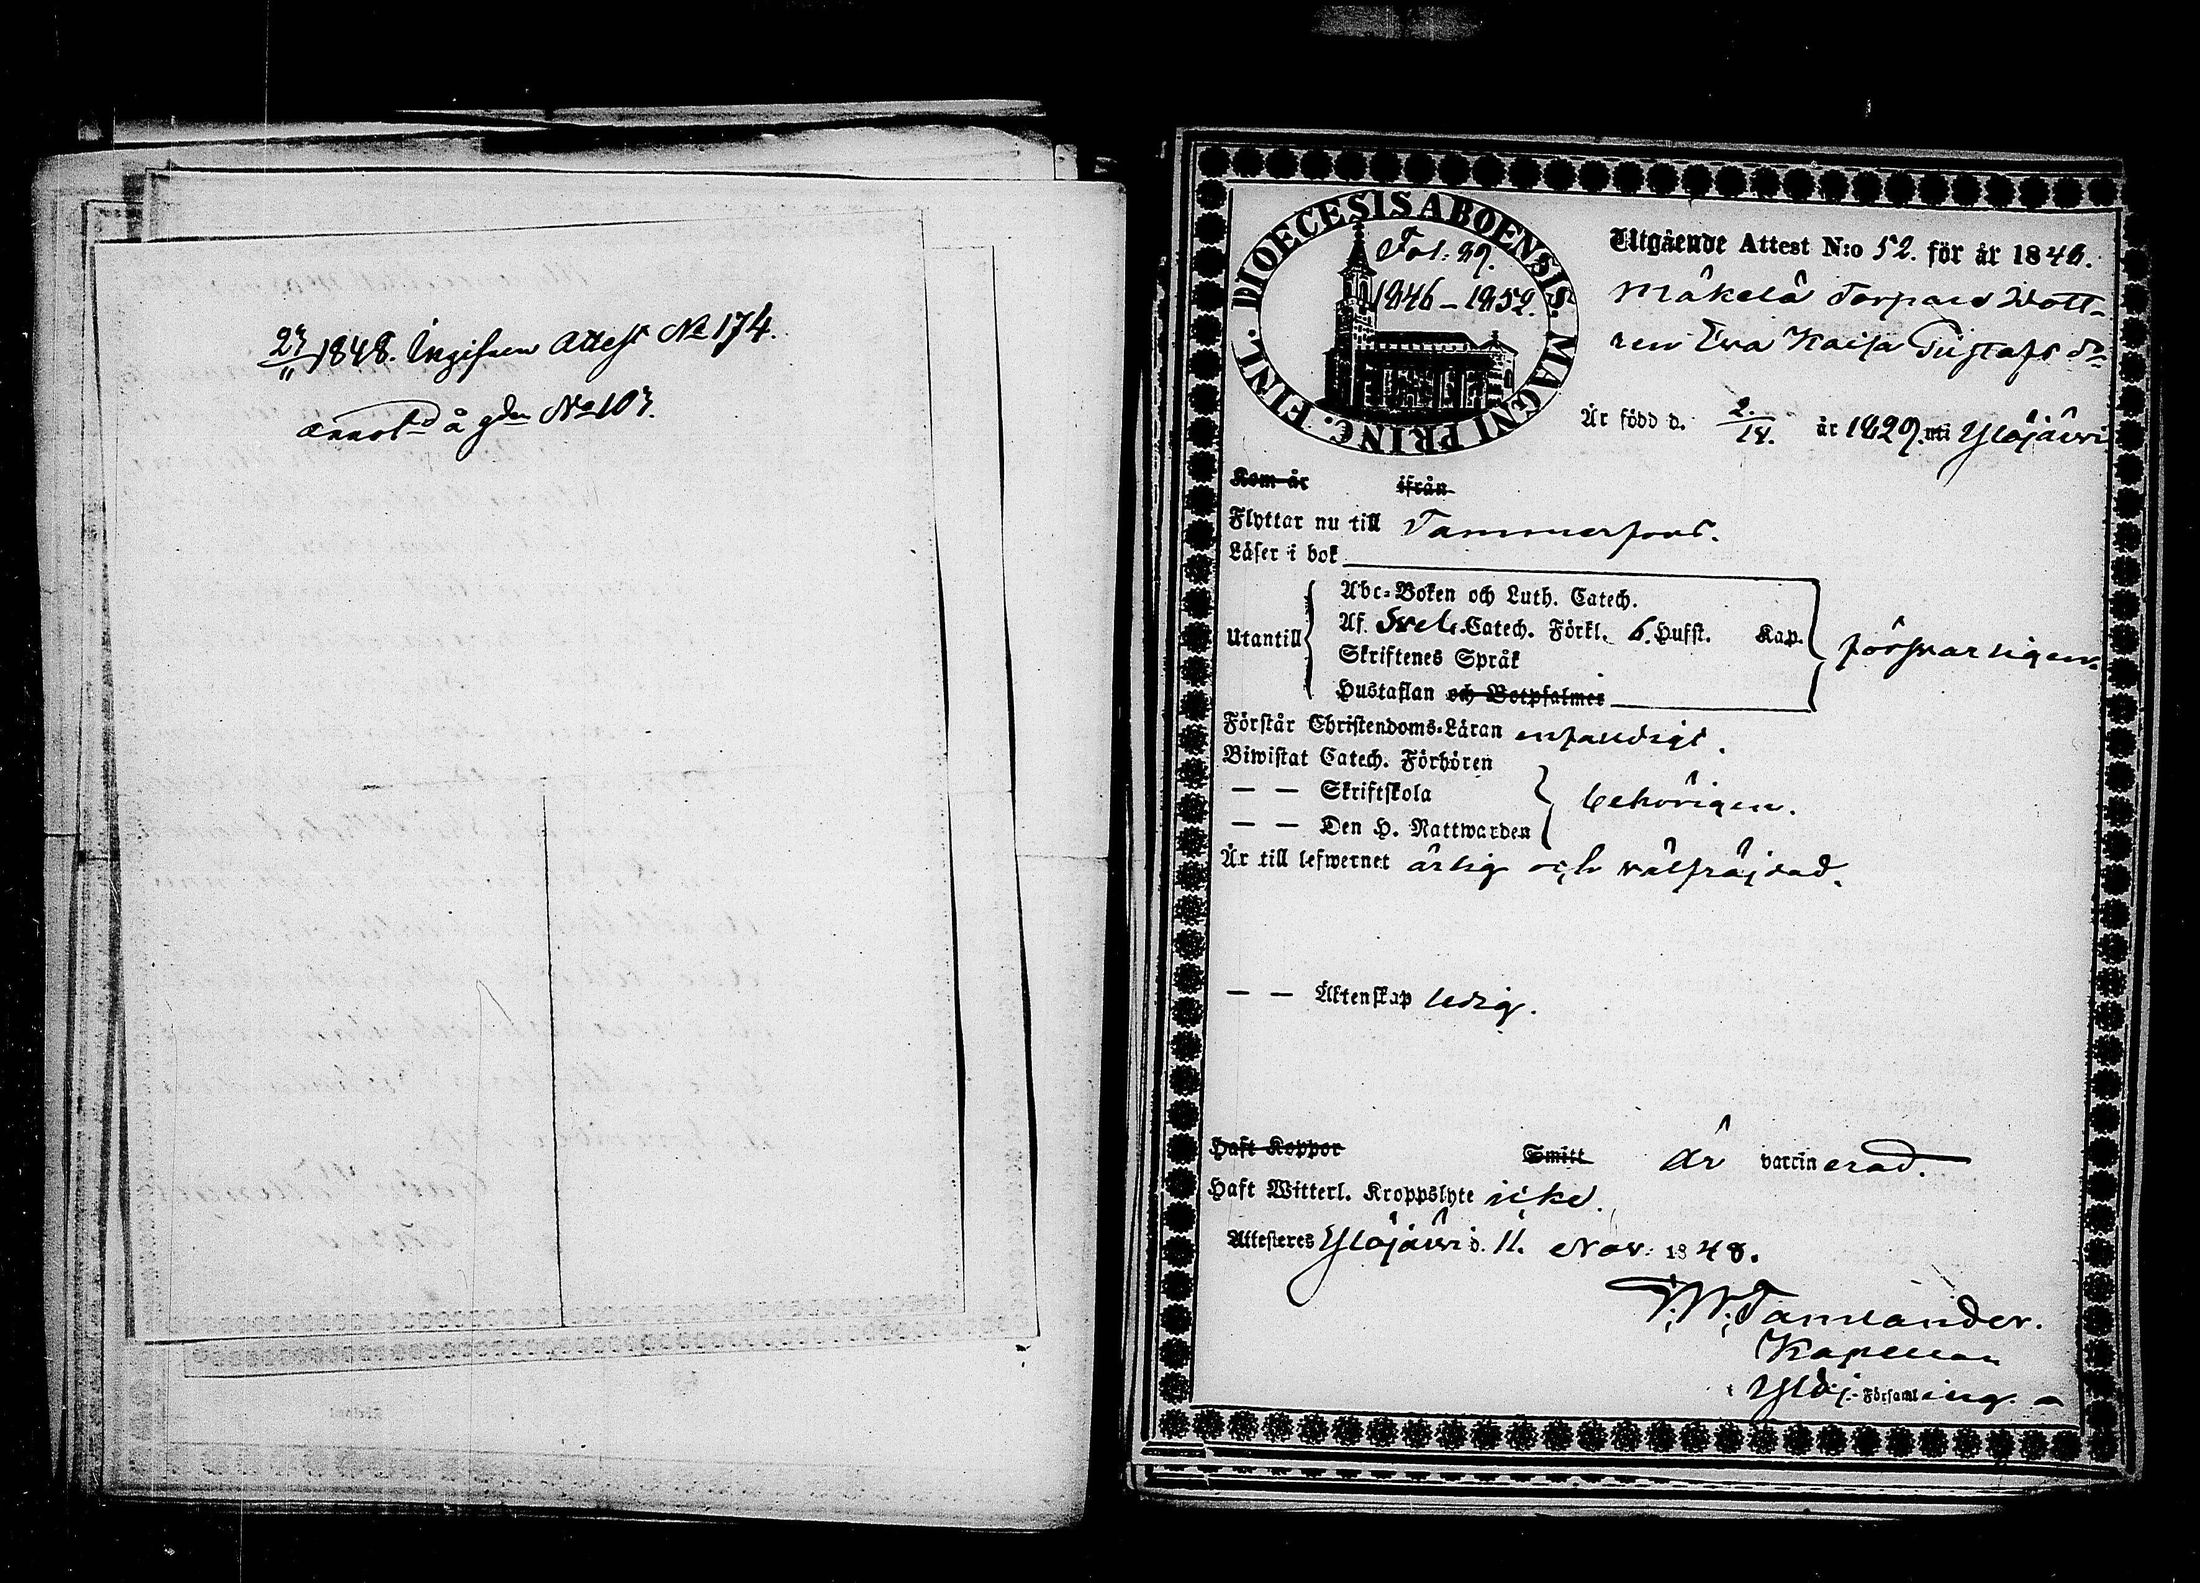 23/11 1848. Ingifven Attest No 174.
annotd å gdn No 103.
DIOECESIS ABOENSIS. MAGNI PRINC. FINL.
Fol: 39.
1846–1852.
Utgående Attest N:o 52. för år 1848.
Mäkelä Torpare Dott-
ren Eva Kaisa Gustafs dr
Är född d. 2./18. år 1829. uti Ylöjärvi
Kom år ifrån
Flyttar nu till Tammerfors.
Läser i bok
Utantill
Abc-Boken och Luth. Catech.
Af. Sveb. Catech. Förkl. 6. Hufst. Kap.
Skriftenes Språk
Hustaflan och Botpsalmer
försvarligen.
Förstår Christendoms-Läran enfaldigt.
Biwistat Catech. Förhören
— — Skriftskola
— — Den H. Nattwarden
behörigen.
Är till lefwernet ärlig och välfräjdad.
— — Äktenskap ledig.
Haft Koppor Smitt Är vaccinerad.
Haft Witterl. Kroppslyte icke.
Attesteres Ylöjärvi d. 11. Nov: 1848.
Tamlander.
Kapellan
i Ylöj. Församling.